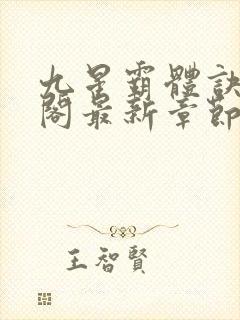 九星霸體訣
閣最新章節
王智賢